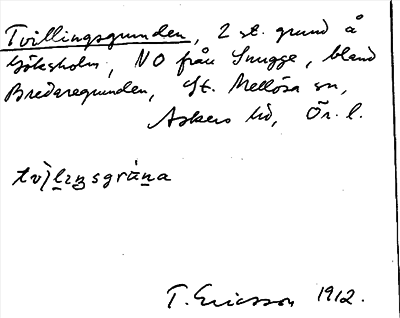 Tvillingsgrunden, 2 st. grund å
Göksholm, NO från Snugge, bland
Bredaregrunden, St. Mellösa sn,
Askers hd, Ör. l.
T. Ericsson 1912.